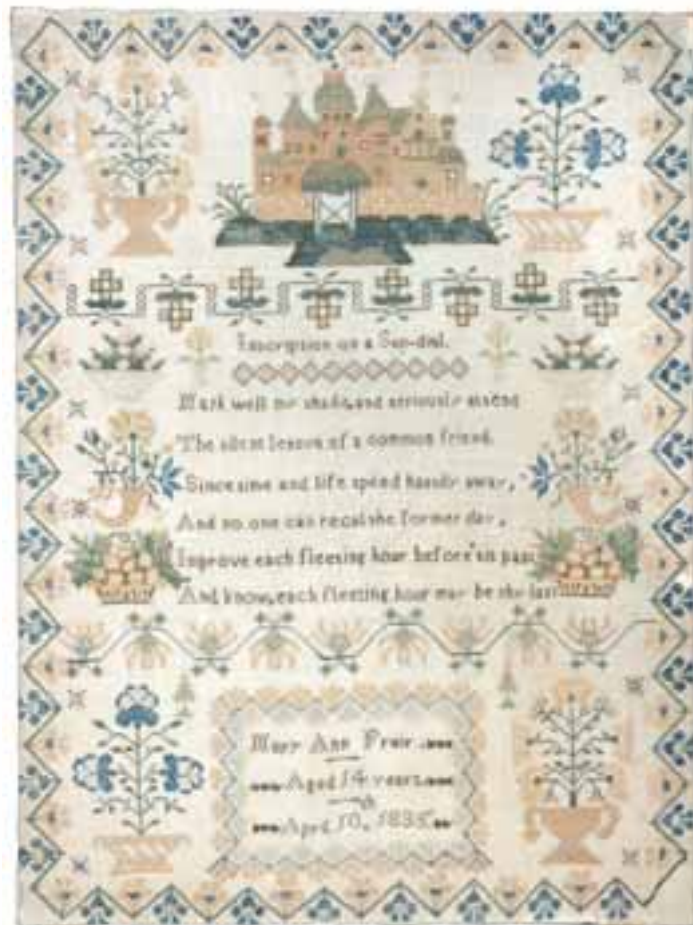 Inscription on a Sun-dial.
Mark well my shade, and seriously attend
The silent lesson of a common friend.
Since time and life speed hastily away,
And no one can recal the former day,
Improve each fleeting hour before 'tis past
And know, each fleeting hour may be the last
Mary Ann
Aged 14 years
April 10, 1835